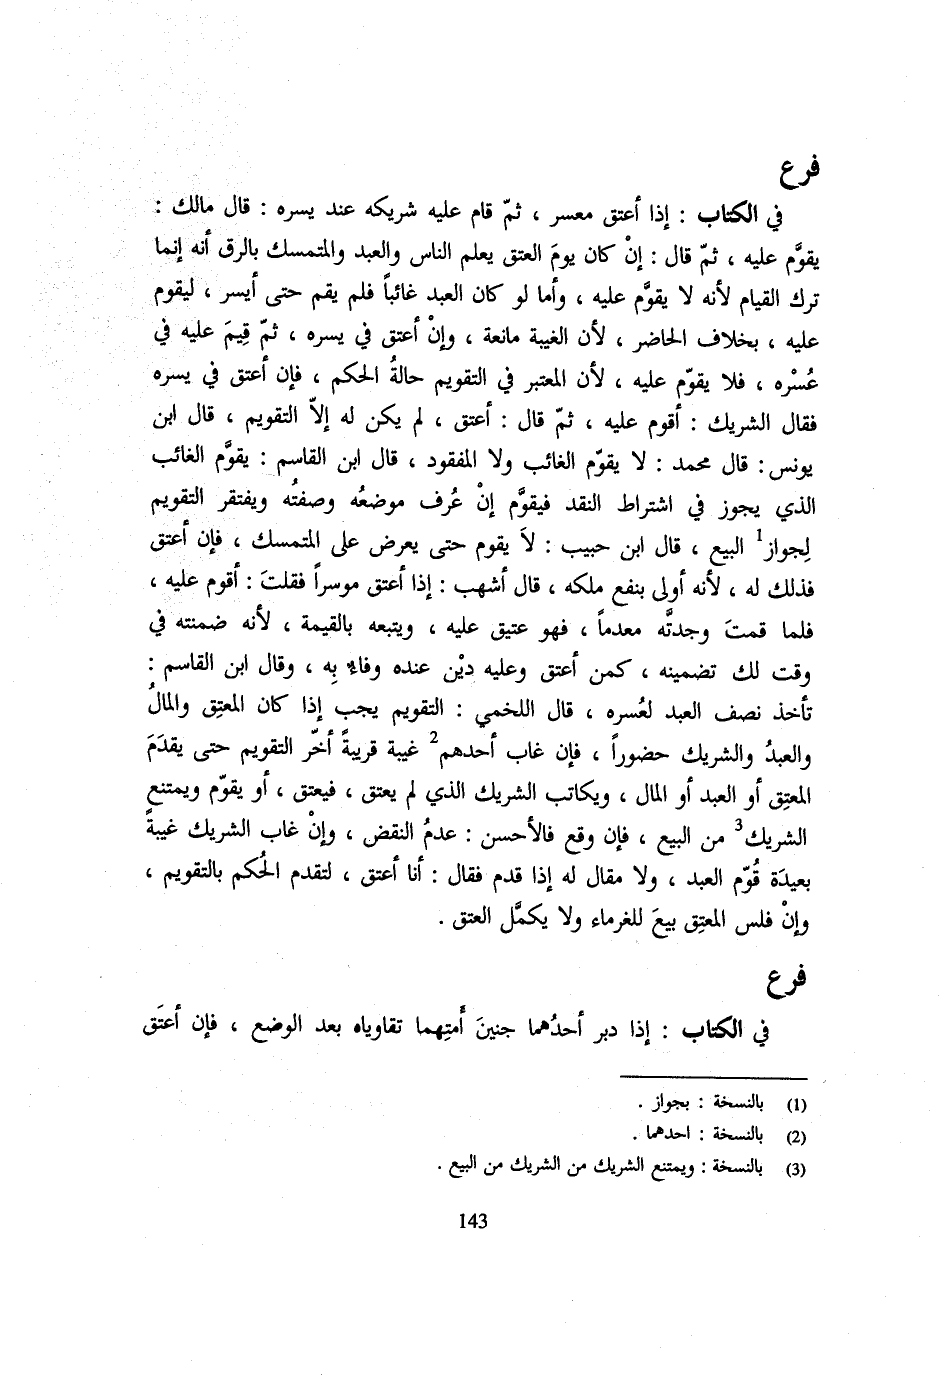 فرع
في الكتاب : إذا أعتق معسر ، ثمّ قام عليه شريكه عند يسره : قال مالك :
يقوَّم عليه ، ثمّ قال : إنْ كان يومَ العتق يعلم الناس والعبد والمتمسك بالرق أنه إنما
ترك القيام لأنه لا يقوَّم عليه ، وأما لو كان العبد غائباً فلم يقم حتى أيسر ، ليقوم
عليه ، بخلاف الحاضر ، لأن الغيبة مانعة ، وإنْ أعتق في يسره ، ثمّ قِيمَ عليه في
عُسْره ، فلا يقوّم عليه ، لأن المعتبر في التقويم حالةُ الحكم ، فإن أعتق في يسره
فقال الشريك : أقوم عليه ، ثمّ قال : أعتق ، لم يكن له إلاّ التقويم ، قال ابن
يونس: قال محمد : لا يقوّم الغائب ولا المفقود ، قال ابن القاسم : يقوَّم الغائب
الذي يجوز في اشتراط النقد فيقوَّم إنْ عُرف موضعُه وصفتُه ويفتقر التقويم
لِجواز1 البيع ، قال ابن حبيب : لاَ يقوم حتى يعرض على المتمسك ، فإن أعتق
فذلك له ، لأنه أولى بنفع ملكه ، قال أشهب : إذا أعتق موسراً فقلتَ : أقوم عليه ،
فلما قمتَ وجدتَّه معدماً ، فهو عتيق عليه ، ويتبعه بالقيمة ، لأنه ضمنته في
وقت لك تضمينه ، كمن أعتق وعليه ديْن عنده وفاءٌ بِه ، وقال ابن القاسم :
تأخذ نصف العبد لعُسره ، قال اللخمي : التقويم يجب إذا كان المعتِق والمالُ
والعبدُ والشريك حضوراً ، فإن غاب أحدهم2 غيبة قريبةً أخّر التقويم حتى يقدَمَ
المعتِق أو العبد أو المال ، ويكاتب الشريك الذي لم يعتق ، فيعتق ، أو يقوّم ويمتنع
الشريك3 من البيع ، فإن وقع فالأحسن : عدمُ النقض ، وإنْ غاب الشريك غيبةً
بعيدَة قُوّم العبد ، ولا مقال له إذا قدم فقال : أنا أعتق ، لتقدم الحُكم بالتقويم ،
وإنْ فلس المعتِق بيعَ للغرماء ولا يكمَّل العتق .
فرع
في الكتاب : إذا دبر أحدُهما جنينَ أَمتِهما تقاوياه بعد الوضع ، فإن أعتَق
(1) بالنسخة : بجواز .
(2) بالنسخة : احدهما .
(3) بالنسخة : ويمتنع الشريك من الشريك من البيع .
143